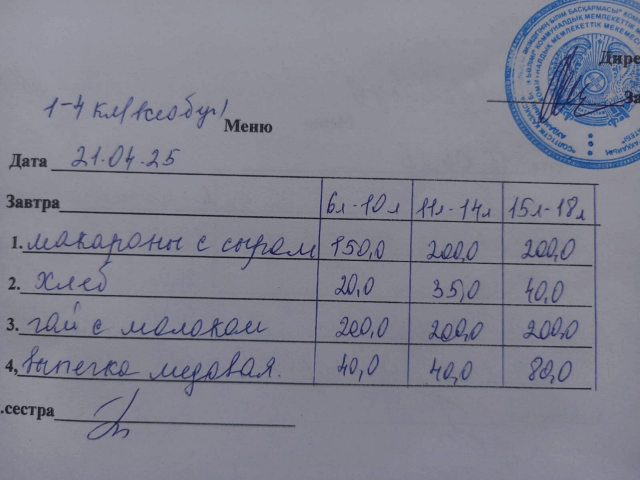 Дире
За
1-4 кл (всеобуч)
Меню
Дата 21.04.25
Завтра 6л-10л 11л-14л 15л-18л
1. макароны с сыром 150,0 200,0 200,0
2. хлеб 20,0 35,0 40,0
3. чай с молоком 200,0 200,0 200,0
4, выпечка медовая. 40,0 40,0 80,0
.сестра